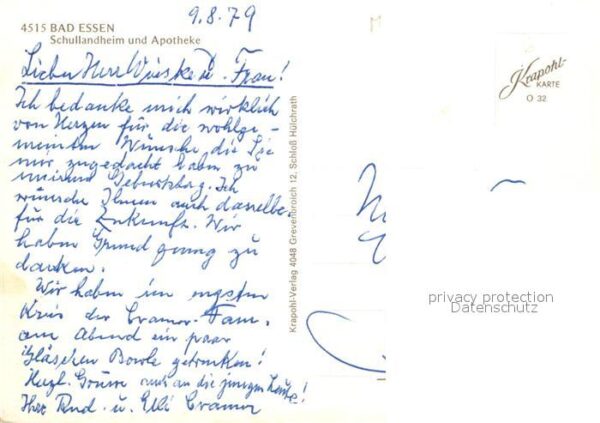 9.8.79
4515 BAD ESSEN
Schullandheim und Apotheke
Lieber Herr Wieske u. Frau!
Ich bedanke mich wirklich
von Herzen für die wohlge-
meinten Wünsche, die Sie
mir zugedacht haben zu
meinem Geburtstag. Ich
wünsche Ihnen auch dasselbe
für die Zukunft. Wir
haben Grund genug zu
danken.
Wir haben im engsten
Kreis der Cramer-Fam.
am Abend ein paar
Gläschen Bowle getrunken!
Herzl. Grüsse auch an die jungen Leute!
Ihre Rud. u. Elli Cramer
Krapohl-Verlag 4048 Grevenbroich 12, Schloß Hülchrath
Krapohl-
KARTE
O 32
privacy protection
Datenschutz